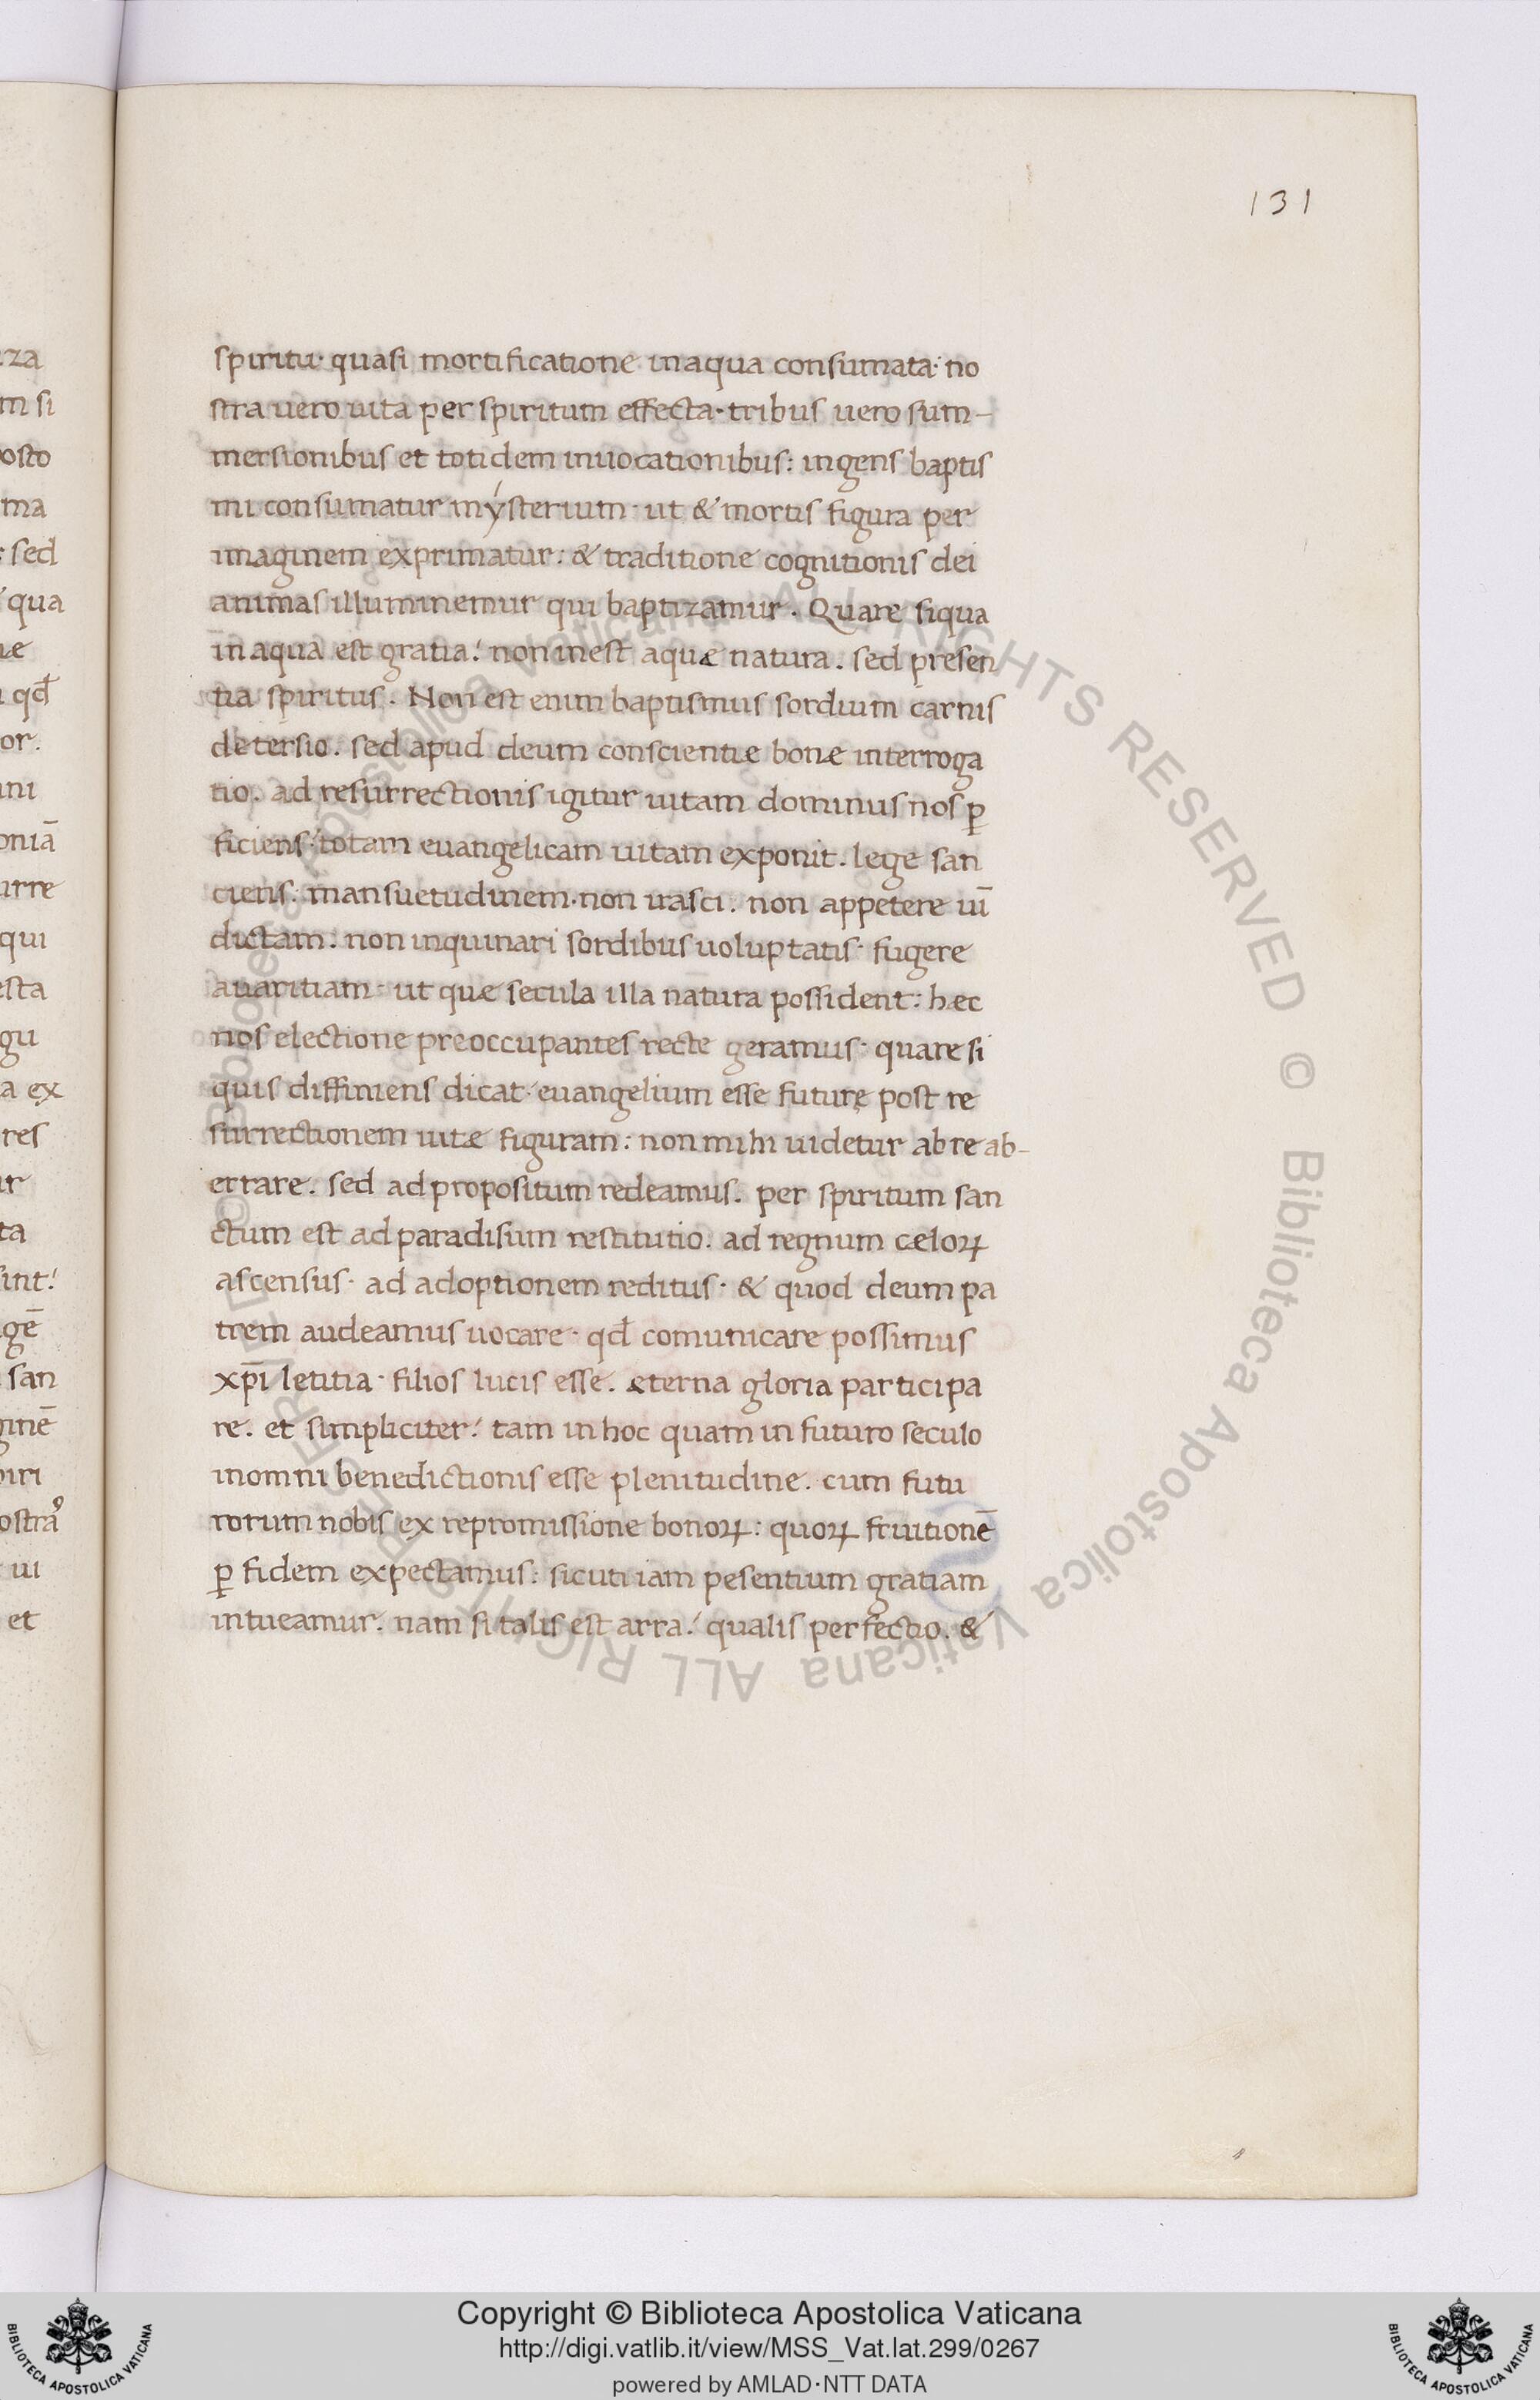 131
spiritu· quasi mortificatione in aqua consumata: no
stra uero uita per spiritum effecta· tribus uero sum-
mersionibus et totidem inuocationibus: ingens baptis
mi consumatur mýsterium· ut & mortis figura per
imaginem exprimatur: & traditione cognitionis dei
animas illuminemur qui baptizamur. Quare siqua
in aqua est gratia! non inest aquæ natura. sed presen
tia spiritus. Non est enim baptismus sordium carnis
detersio. sed apud deum conscientiæ bonæ interroga
tio. ad resurrectionis igitur uitam dominus nos ꝑ
ficiens! totam euangelicam uitam exponit. lege san
ciens: mansuetudinem· non irasci. non appetere uī
dictam. non inquinari sordibus uoluptatis· fugere
auaritiam· ut quæ secula illa natura possident: hæc
nos electione preoccupantes recte geramus· quare si
quis diffiniens dicat· euangelium esse futurę post re
surrectionem uitæ figuram: non mihi uidetur ab re ab-
errare. sed ad propositum redeamus. per spiritum san
ctum est ad paradisum restitutio. ad regnum cęloꝝ
ascensus· ad adoptionem reditus· & quod deum pa
trem audeamus uocare· qđ comunicare possimus
xp̄i letitia· filios lucis esse. æterna gloria participa
re. et simpliciter! tam in hoc quam in futuro seculo
in omni benedictionis esse plenitudine. cum futu
rorum nobis ex repromissione bonoꝝ: quoꝝ fruitionē
ꝑ fidem expectamus: sicuti iam pesentium gratiam
intueamur. nam si talis est arra! qualis perfectio. &
za
m si
osto
ma
: sed
qua
qđ
or.
ni
oniā
urre
qui
esta
gu
a ex
res
ta
sint!
gē
san
ginē
piri
ui
et
© Biblioteca Apostolica Vaticana ALL RIGHTS RESERVED
© Biblioteca Apostolica Vaticana ALL RIGHTS RESERVED
BIBLIOTECA APOSTOLICA VATICANA
Copyright © Biblioteca Apostolica Vaticana
http://digi.vatlib.it/view/MSS_Vat.lat.299/0267
powered by AMLAD·NTT DATA
BIBLIOTECA APOSTOLICA VATICANA